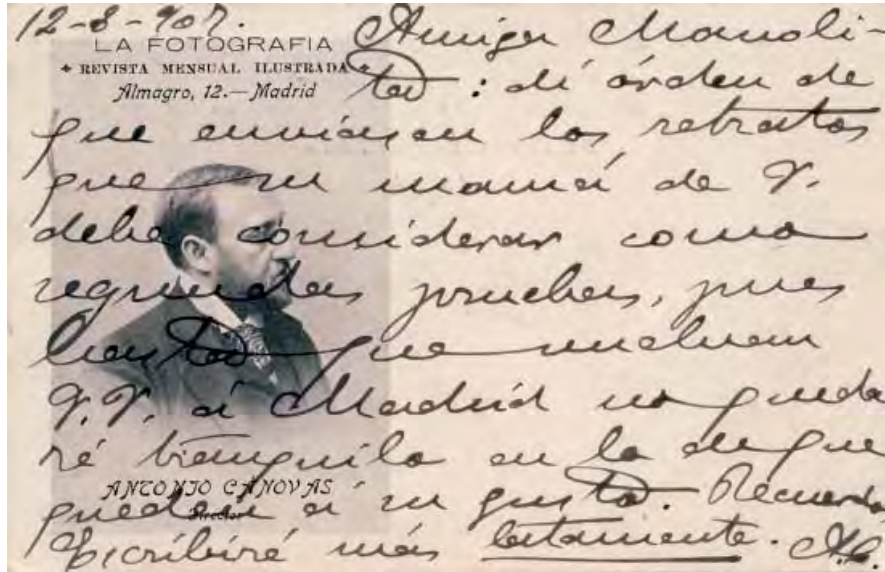 12-8-907.
LA FOTOGRAFIA
REVISTA MENSUAL ILUSTRADA
Almagro, 12.—Madrid
Amiga Manoli-
ta: dí órden de
que enviasen los retratos
que su mamá de V.
debe considerar como
segundas pruebas, pues
hasta que vuelvan
V.V. á Madrid no queda
ré tranquilo en lo de que
queden á su gusto. Recuerdos
Escribiré más latamente. A.C.
ANTONIO CANOVAS
Director